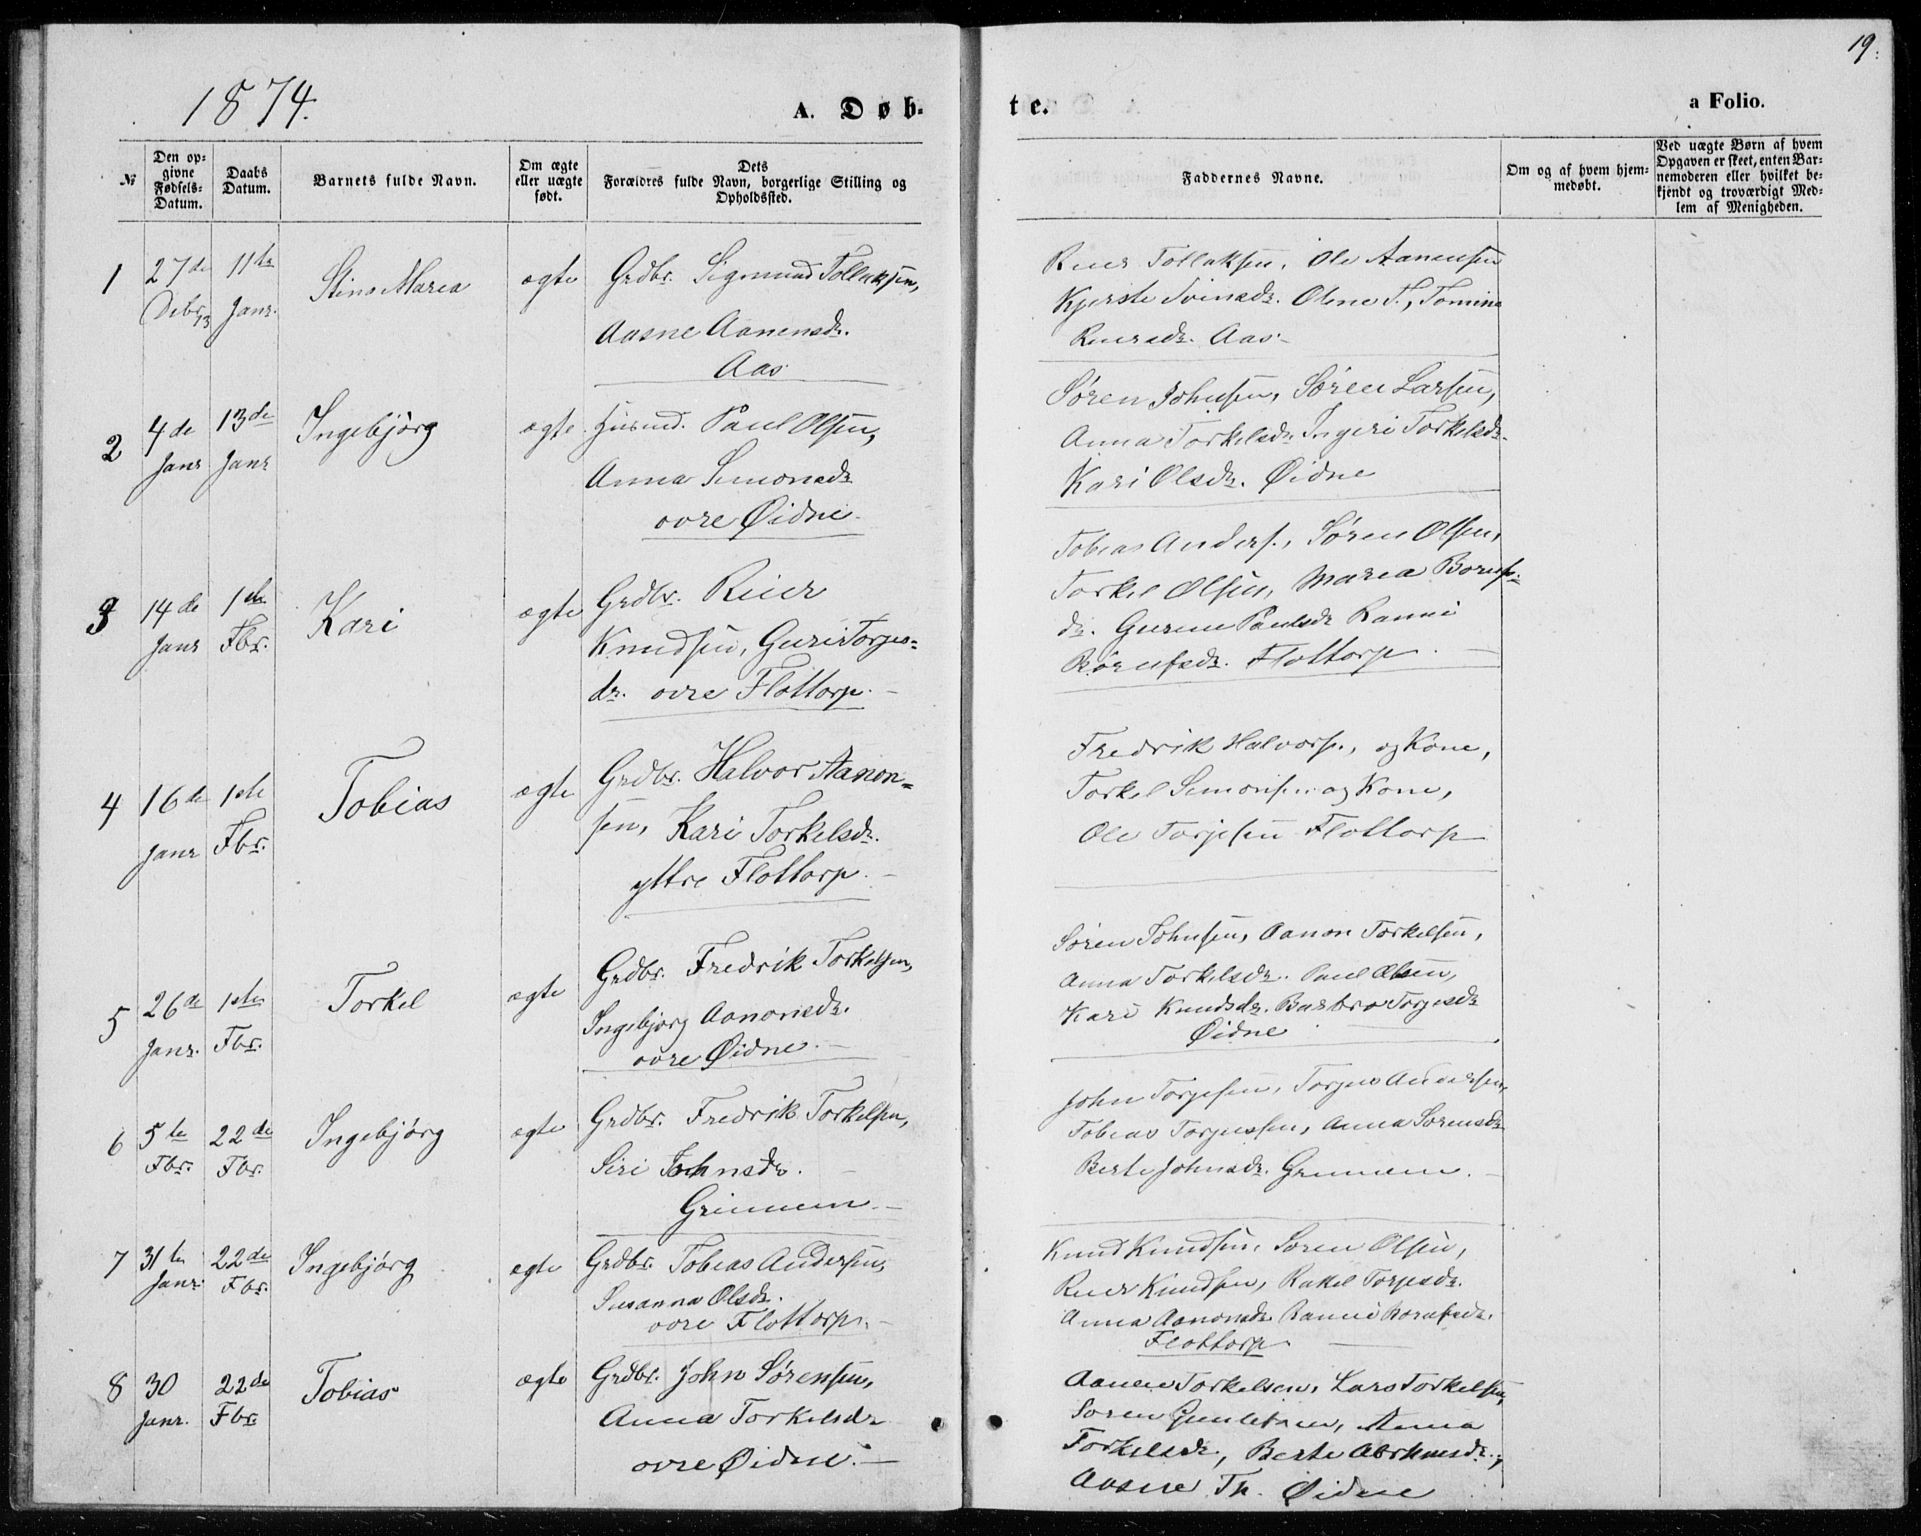 1874.
A. Døb-
te.
a Folio.
19.
№
Den op-
givne
Fødsels-
Datum.
Daabs
Datum.
Barnets fulde Navn.
Om ægte
eller uægte
født.
Dets
Forældres fulde Navn, borgerlige Stilling og
Opholdssted.
Faddernes Navne.
Om og af hvem hjem-
medøbt.
Ved uægte Børn af hvem
Opgaven er skeet, enten Bar-
nemoderen eller hvilket be-
kjendt og troværdigt Med-
lem af Menigheden.
1
27de
Debr. 73
11te
Janr.
Stine Marea
ægte
Grdbr. Sigmund Tollaksen,
Aasne Aanensdr.
Aas
Reier Tollaksen, Ole Aanensen
Kjerste Sveinsdr. Olene T., Tomine
Reiersdr. Aas
2
4de
Janr
13de
Janr
Ingebjørg
ægte
Husmd. Paul Olsen,
Anna Simonsdr
ovre Øidne
Søren Johnsen, Søren Larsen,
Anna Torkelsdr. Ingeri Torkelsdr.
Kari Olsdr. Øidne
3
14de
Janr
1ste
Fbr.
Kari
ægte
Grdbr. Reier
Knudsen, Guri Torges-
dr. ovre Flottorp.
Tobias Anders., Søren Olsen,
Torkel Olsen, Marea Borufs-
dr. Gurine Paulsdr Rannei
Børufsdr. Flottorp
4
16de
Janr
1ste
Fbr.
Tobias
ægte
Grdbr. Halvor Aanon-
sen, Kari Torkelsdr.
yttre Flottorp.
Fredrik Halvors., og Kone,
Torkel Simons. og Kone,
Ole Torjesen Flottorp
5
26de
Janr.
1ste
Fbr.
Torkel
ægte
Grdbr. Fredrik Torkelsen,
Ingebjørg Aanonsdr.
ovre Øidne.
Søren Johnsen, Aanon Torkelsen,
Anna Torkelsdr. Paul Olsen,
Kari Knudsdr. Barbro Torgesdr
Øidne
6
5te
Fbr.
22de
Fbr.
Ingebjørg
ægte
Grdbr. Fredrik Torkelsen,
Siri Johnsdr.
Grimnem
John Torgesen, Torjus Andersen,
Tobias Torjussen, Anna Sørensdr
Berte Johnsdr. Grimnem.
7
31te
Janr.
22de
Fbr.
Ingebjørg
ægte
Grdbr. Tobias Andersen,
Susanna Olsdr.
ovre Flottorp.
Knud Knudsen, Søren Olsen,
Reier Knudsen, Rakel Torjesdr.
Anna Aanonsdr. Rannei Borufsdr.
Flottorp
8
30
Janr.
22de
Fbr.
Tobias
ægte
Grdbr. John Sørensen,
Anna Torkelsdr
ovre Øidne.
Aanen Torkelsen, Lars Torkelsen,
Søren Gunleksen, Anna
Torkelsdr, Berte Abrhmsdr.,
Aasne Th. Øidne